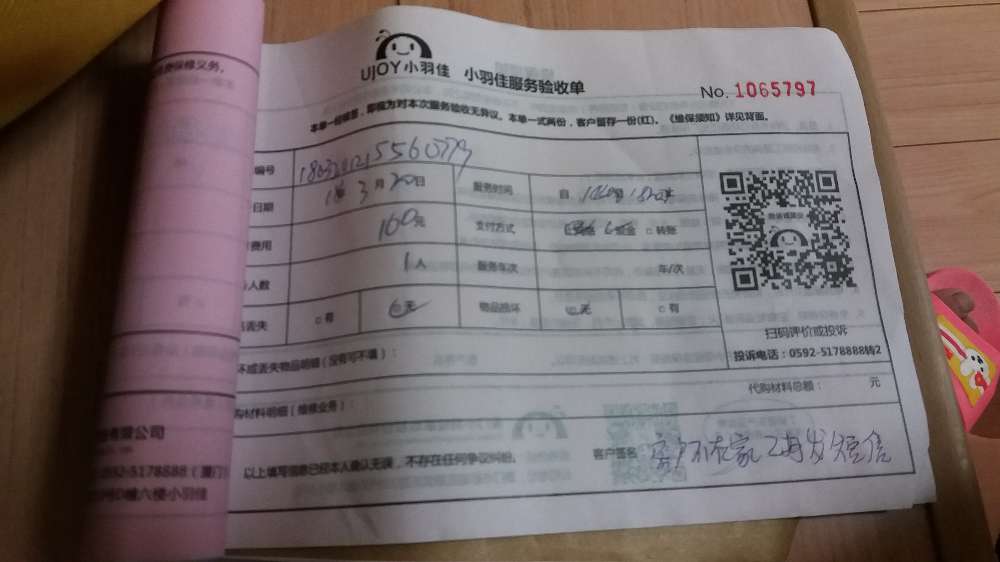 保修义务。
UJOY小羽佳 小羽佳服务验收单
No. 1065797
本单一经签署，即视为对本次服务验收无异议。本单一式两份，客户留存一份(红)。《维保须知》详见背面。
编号
日期 3月20日 服务时间 自
费用 160元 支付方式 □转账
人数 1人 服务车次 车/次
丢失 □有 无 物品损坏 无 □有
扫码评价或投诉
投诉电话：0592-5178888转2
坏或丢失物品明细（没有可不填）：
代购材料总额： 元
购材料明细（维修业务）：
有限公司
0592-5178888（厦门
D幢六楼小羽佳
以上填写信息已经本人确认无误，不存在任何争议纠纷。
客户签名：客户不在家 已发短信